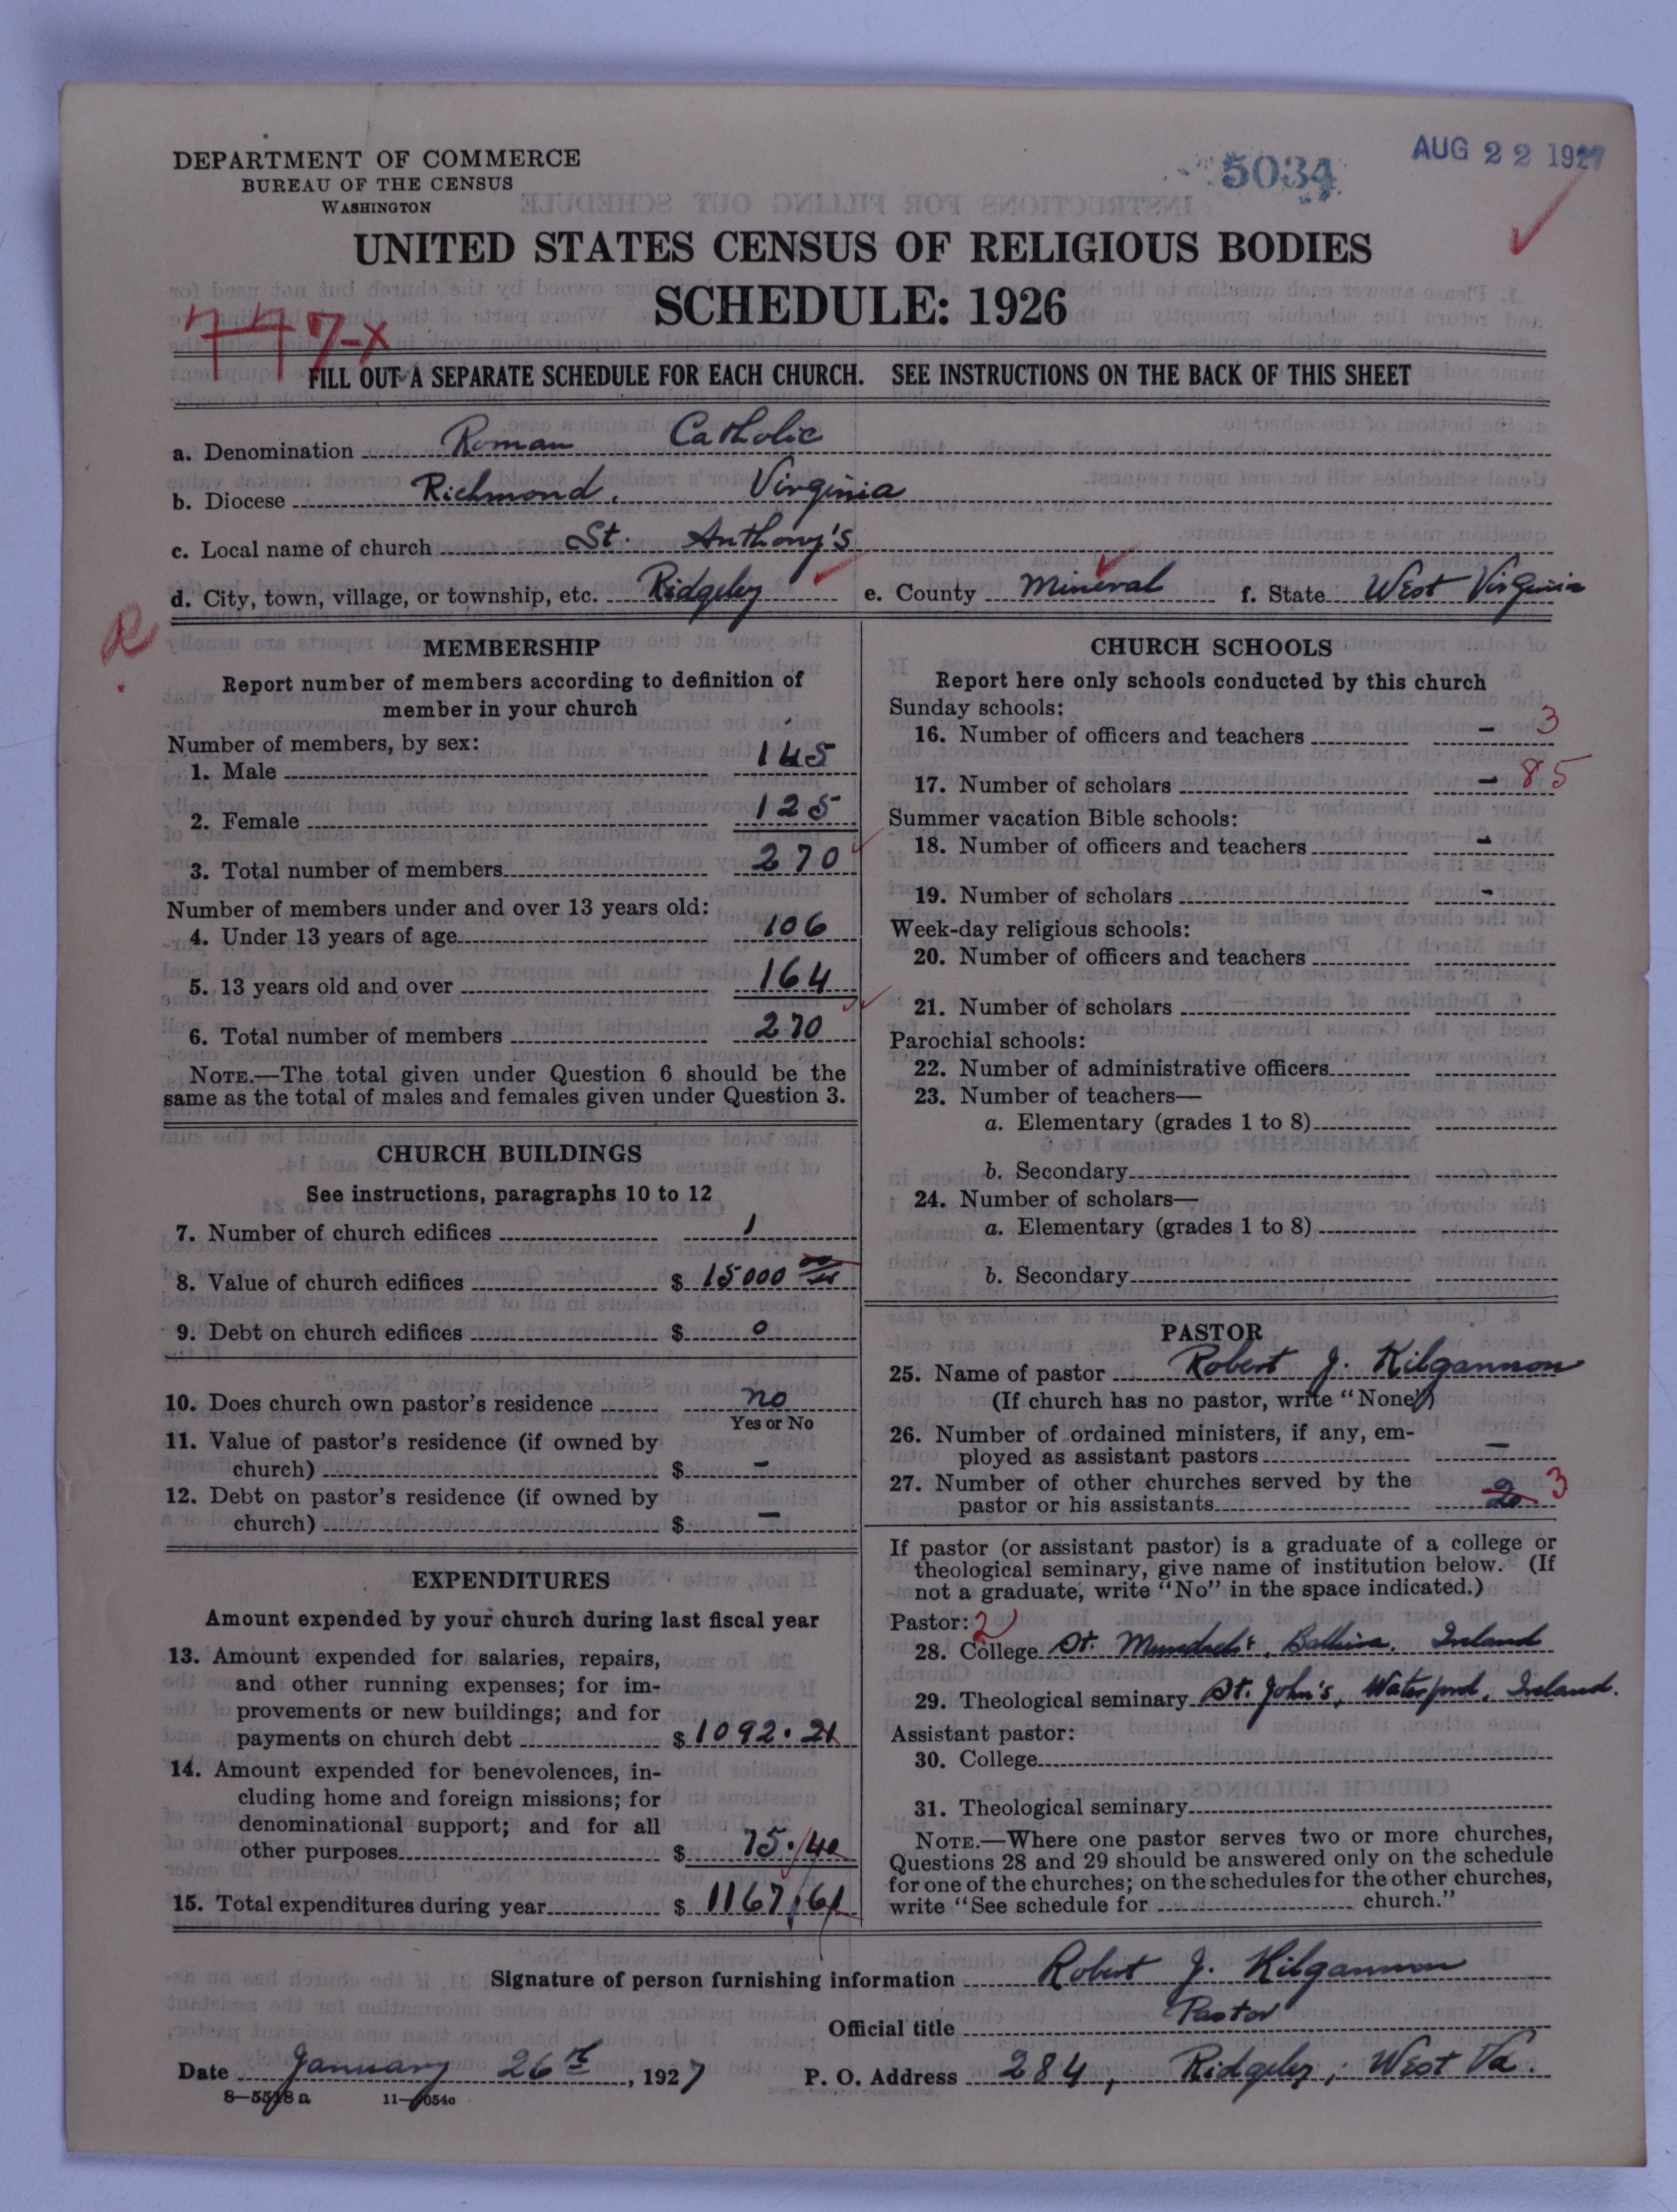 DEPARTMENT OF COMMERCE
BUREAU OF THE CENSUS
WASHINGTON
5034
AUG 22 1927
UNITED STATES CENSUS OF RELIGIOUS BODIES
SCHEDULE: 1926
477-X
FILL OUT A SEPARATE SCHEDULE FOR EACH CHURCH. SEE INSTRUCTIONS ON THE BACK OF THIS SHEET
a. Denomination Roman Catholic
b. Diocese Richmond, Virginia
c. Local name of church St. Anthony's
d. City, town, village, or township, etc. Ridgeley e. County Mineral f. State West Virginia
R
MEMBERSHIP
Report number of members according to definition of
member in your church
Number of members, by sex:
1. Male 145
2. Female 125
3. Total number of members 270
Number of members under and over 13 years old:
4. Under 13 years of age 106
5. 13 years old and over 164
6. Total number of members 270
NOTE.—The total given under Question 6 should be the
same as the total of males and females given under Question 3.
CHURCH BUILDINGS
See instructions, paragraphs 10 to 12
7. Number of church edifices 1
8. Value of church edifices $ 15000
9. Debt on church edifices $ 0
10. Does church own pastor's residence no
Yes or No
11. Value of pastor's residence (if owned by
church) $ -
12. Debt on pastor's residence (if owned by
church) $ -
EXPENDITURES
Amount expended by your church during last fiscal year
13. Amount expended for salaries, repairs,
and other running expenses; for im-
provements or new buildings; and for
payments on church debt $ 1092.21
14. Amount expended for benevolences, in-
cluding home and foreign missions; for
denominational support; and for all
other purposes $ 75.40
15. Total expenditures during year $ 1167.61
CHURCH SCHOOLS
Report here only schools conducted by this church
Sunday schools:
16. Number of officers and teachers - 3
17. Number of scholars - 85
Summer vacation Bible schools:
18. Number of officers and teachers -
19. Number of scholars -
Week-day religious schools:
20. Number of officers and teachers
21. Number of scholars
Parochial schools:
22. Number of administrative officers
23. Number of teachers—
a. Elementary (grades 1 to 8)
b. Secondary
24. Number of scholars—
a. Elementary (grades 1 to 8)
b. Secondary
PASTOR
25. Name of pastor Robert J. Kilgannon
(If church has no pastor, write "None")
26. Number of ordained ministers, if any, em-
ployed as assistant pastors -
27. Number of other churches served by the
pastor or his assistants 2 3
If pastor (or assistant pastor) is a graduate of a college or
theological seminary, give name of institution below. (If
not a graduate, write "No" in the space indicated.)
Pastor: 2
28. College St. Ballina, Ireland
29. Theological seminary St. John's, Waterford, Ireland.
Assistant pastor:
30. College
31. Theological seminary
NOTE.—Where one pastor serves two or more churches,
Questions 28 and 29 should be answered only on the schedule
for one of the churches; on the schedules for the other churches,
write "See schedule for church."
Signature of person furnishing information Robert J. Kilgannon
Official title Pastor
Date January 26th, 1927 P. O. Address 284, Ridgeley, West Va.
8—5518a 11—9054c